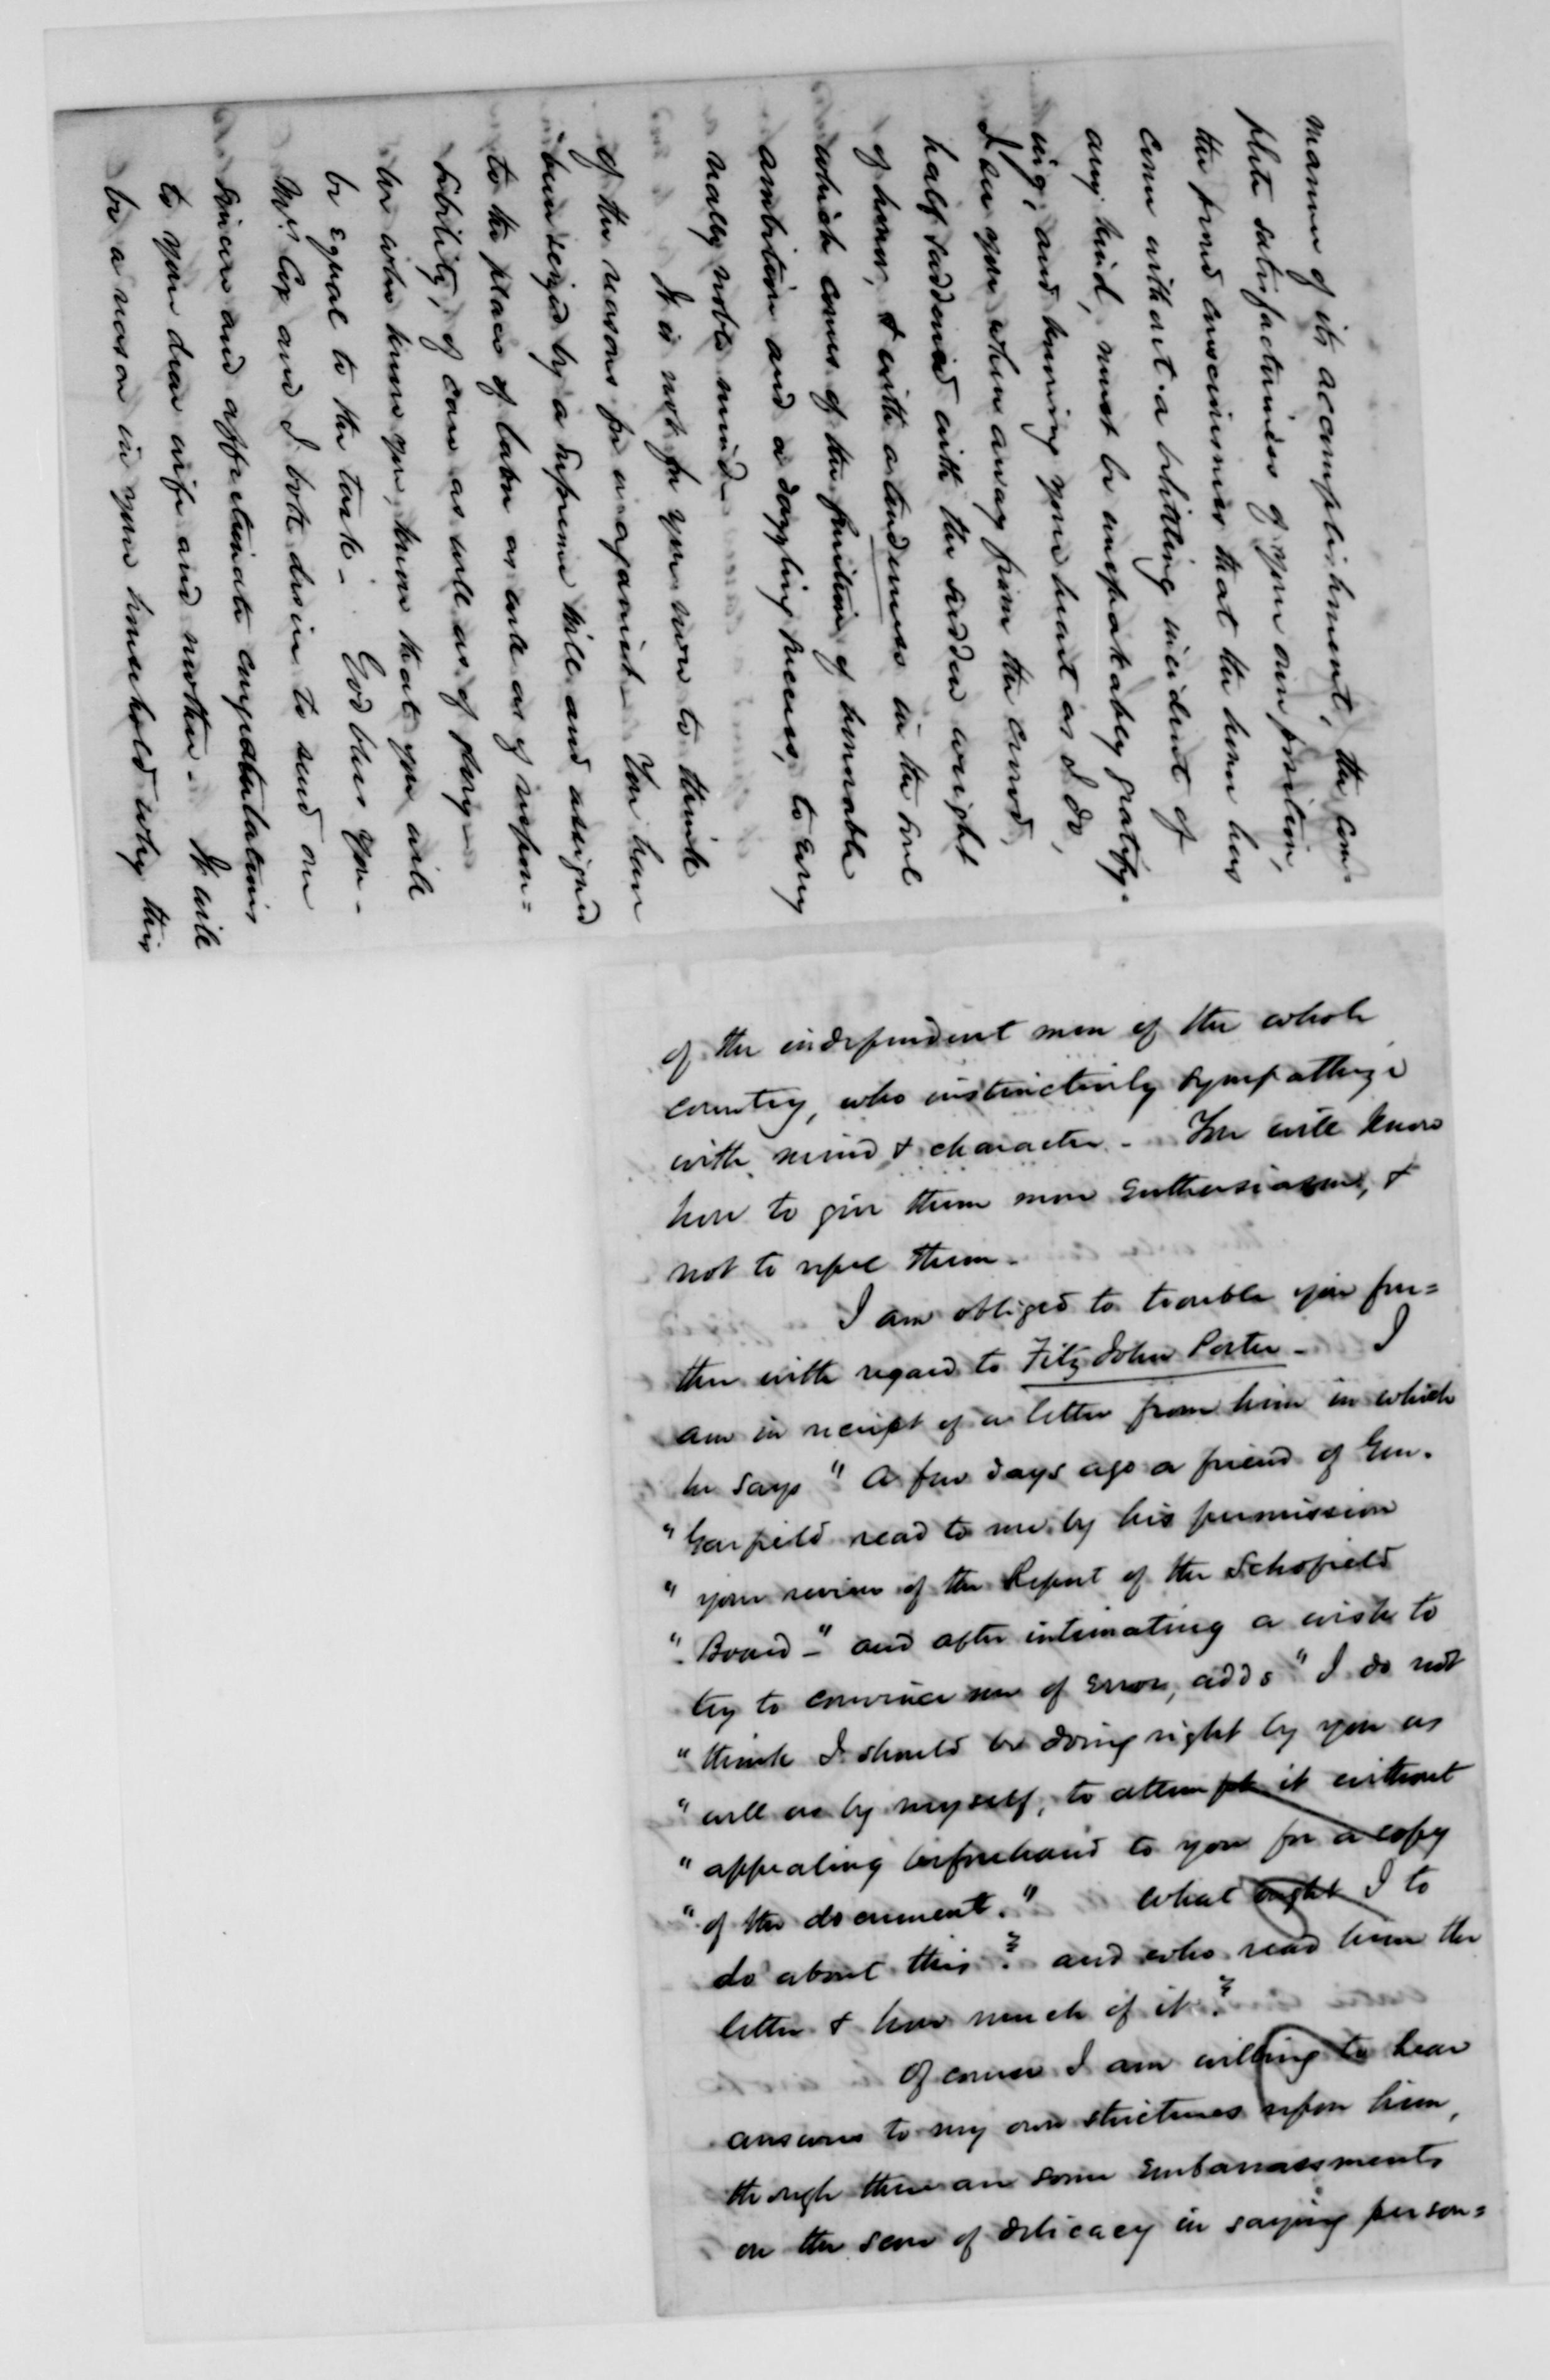 manner of its accomplishment, the com-
plete satisfactoriness of your own position,
the proud consciousness that the honor has
come without a belittling incident of
any kind, must be unspeakably gratify-
ing; and knowing your heart as I do,
I see you when away from the crowd,
half saddened with the sudden weight
of honor, & with a tenderness in the soul
which comes of the fruition of honorable
ambition and a dazzling success, to every
really noble mind-
It is not for you now to think
of the reasons for or against- You have
been seized by a Supreme Will and assigned
to the place of labor as well as of respon=
sibility, of care as well as of glory-
We who know you, know that you will
be equal to the task- God bless you-
Mrs Cox and I both desire to send our
sincere and affectionate congratulations
to your dear wife and mother- It will
be a reason in your household why this
of the independent men of the whole
country, who instinctively sympathize
with mind & character- You will know
how to give them more enthusiasm, &
not to repel them-
I am obliged to trouble you fur=
ther with regard to Fitz John Porter- I
am in receipt of a letter from him in which
he says "A few days ago a friend of Gen.
"Garfield read to me by his permission
"your review of the Report of the Schofield
"Board-" and after intimating a wish to
try to convince me of error, adds "I do not
"think I should be doing right by you as
"well as by myself, to attempt it without
"appealing beforehand to you for a copy
"of the document." What ought I to
do about this? and who read him the
letter & how much of it?
Of course I am willing to hear
answers to my own strictures upon him,
though there are some embarrassments
on the score of delicacy in saying person=